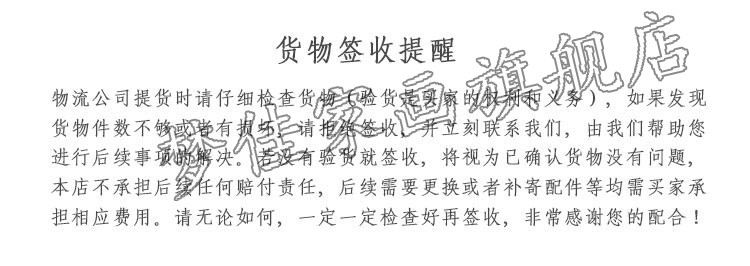 货物签收提醒
物流公司提货时请仔细检查货物（验货是买家的权利和义务），如果发现
货物件数不够或者有损坏，请拒绝签收，并立刻联系我们，由我们帮助您
进行后续事项的解决。若没有验货就签收，将视为已确认货物没有问题，
本店不承担后续任何赔付责任，后续需要更换或者补寄配件等均需买家承
担相应费用。请无论如何，一定一定检查好再签收，非常感谢您的配合！
梦佳家画旗舰店